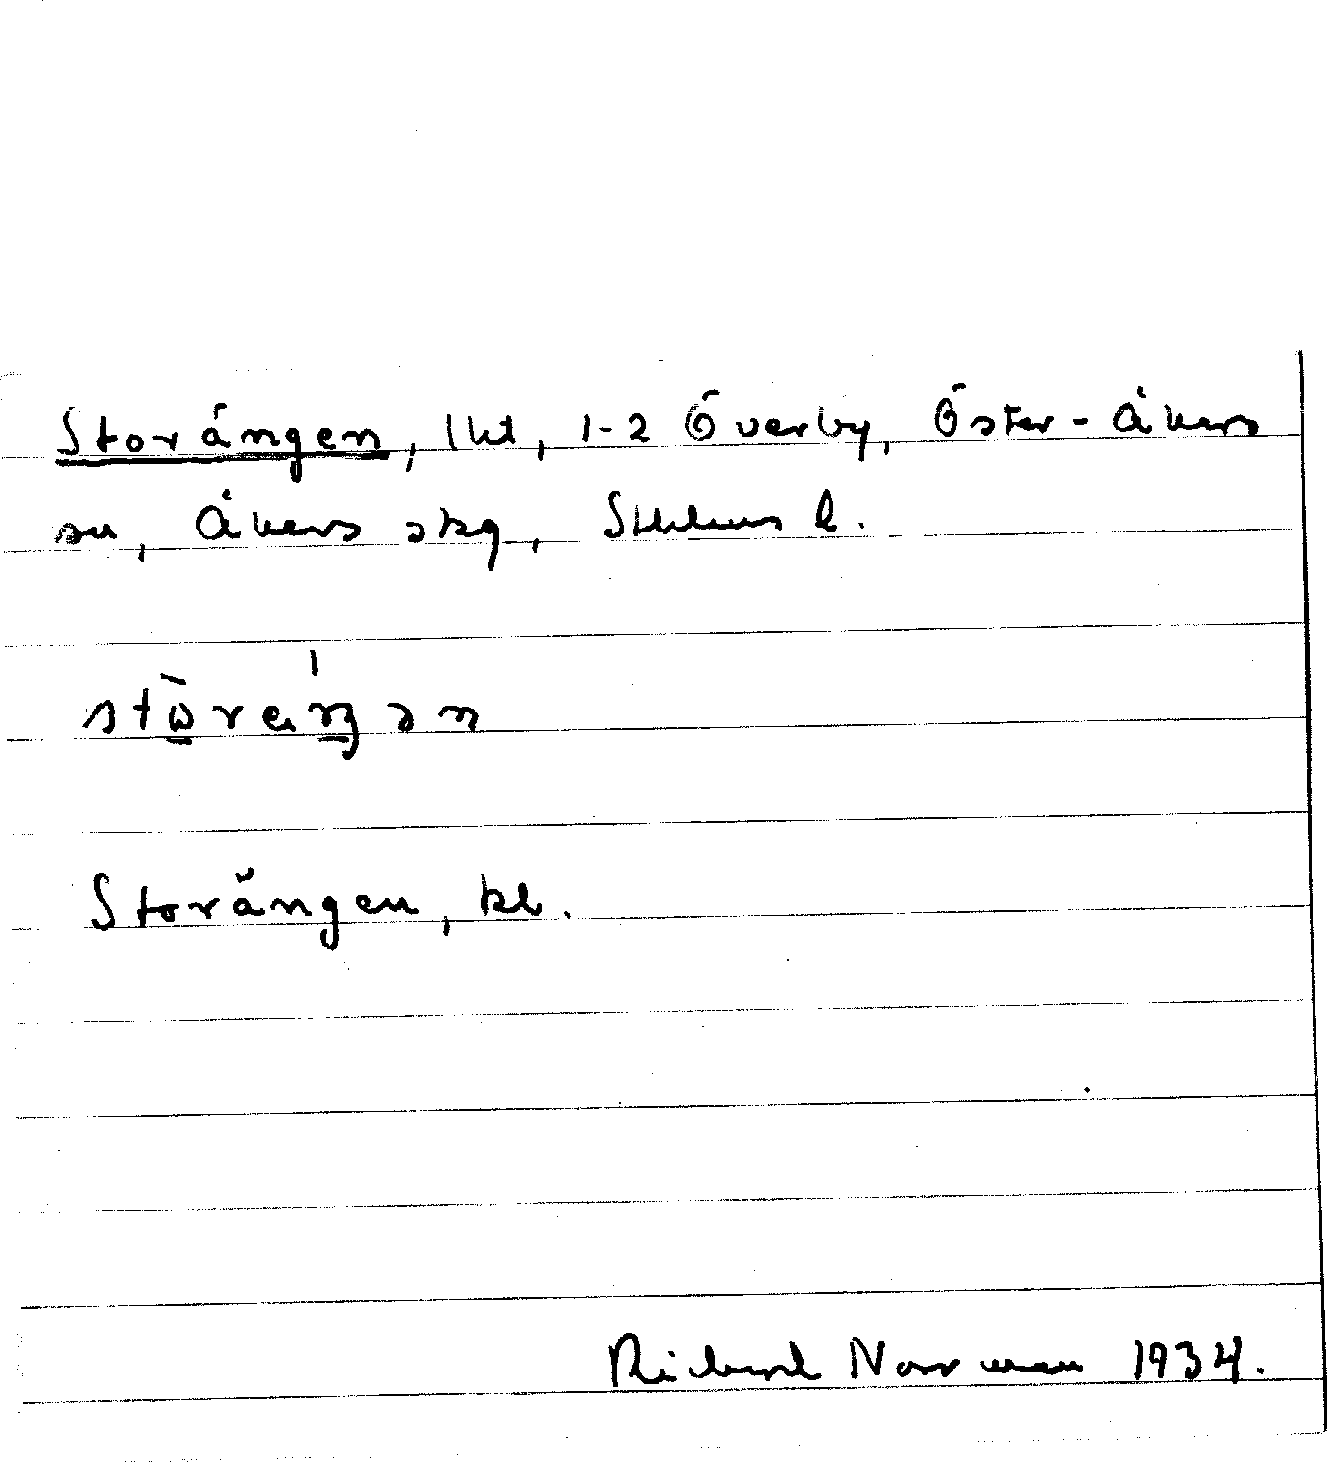 Storängen, lht, 1-2 Överby, Öster-Åkers
sn, Åkers skg, Sthlms l.
stὼræŋən
Storängen, kb.
Richard Norrman 1934.